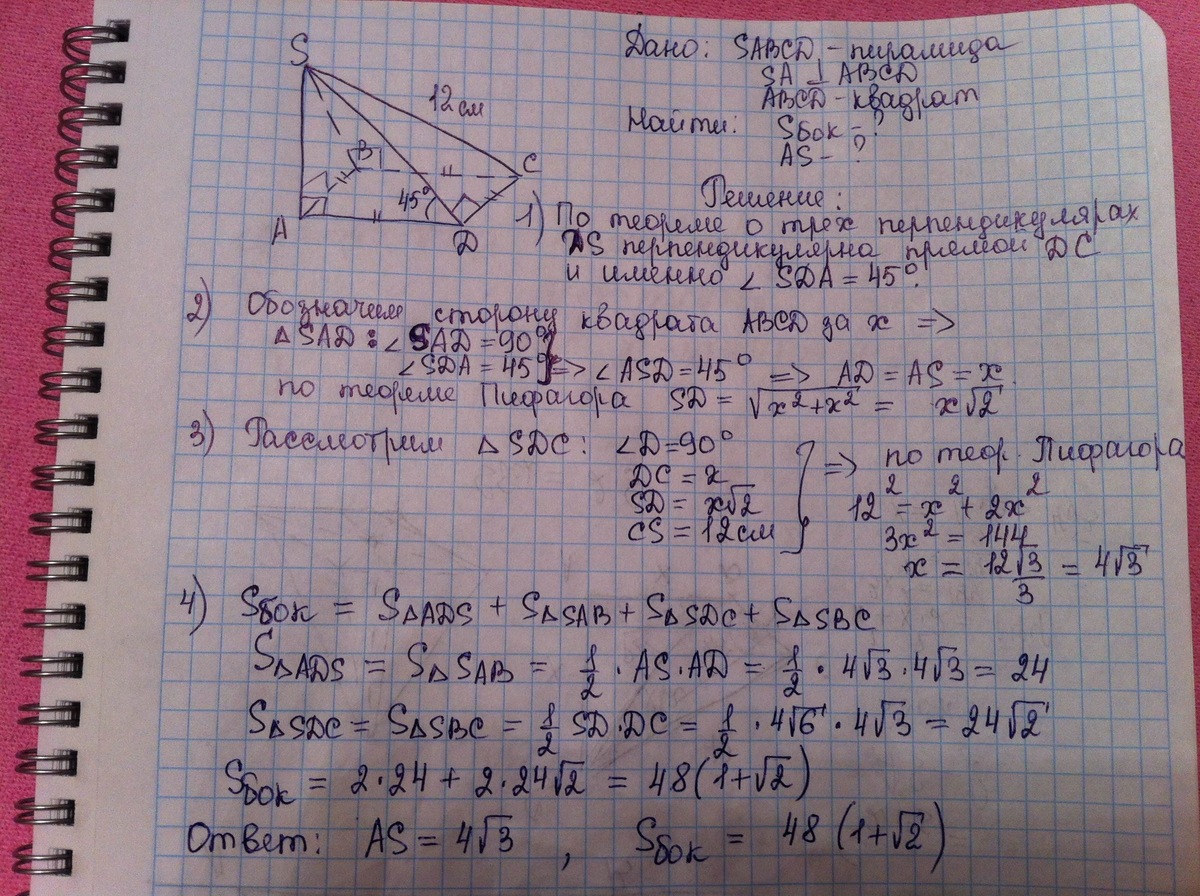 S
12 см
B
C
45°
A
D
Дано: SABCD – пирамида
SA ⊥ ABCD
ABCD – квадрат
Найти: Sбок – ?
AS – ?
Решение:
1) По теореме о трех перпендикулярах
DS перпендикулярна прямой DC
и именно ∠ SDA = 45°.
2) Обозначим сторону квадрата ABCD за x =>
△SAD: ∠SAD = 90°
∠SDA = 45° } => ∠ASD = 45° => AD = AS = x.
по теореме Пифагора SD = √(x²+x²) = x√2
3) Рассмотрим △SDC: ∠D = 90°
DC = x
SD = x√2
CS = 12 см
} => по теор. Пифагора
12² = x² + 2x²
3x² = 144
x = 12√3/3 = 4√3
4) Sбок = S△ADS + S△SAB + S△SDC + S△SBC
S△ADS = S△SAB = 1/2 · AS · AD = 1/2 · 4√3 · 4√3 = 24
S△SDC = S△SBC = 1/2 SD · DC = 1/2 · 4√6 · 4√3 = 24√2
Sбок = 2·24 + 2·24√2 = 48(1+√2)
Ответ: AS = 4√3 , Sбок = 48(1+√2)